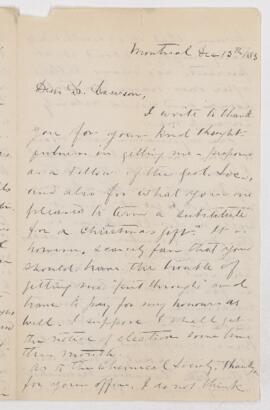 Montreal Dec 13th 1883
Dear Dr. Dawson,
I write to thank
you for your kind thought-
fulness in getting me proposed
as a Fellow of the Geol. Socy,
and also for what you are
pleased to term a "substitute
for a Christmas gift". It is
however, scarcely fair that you
should have the trouble of
getting me "put through" and
have to pay for my honours as
well. I suppose I shall get
the notice of election some time
this month.
As to the Chemical Society, thanks
for your offer. I do not think